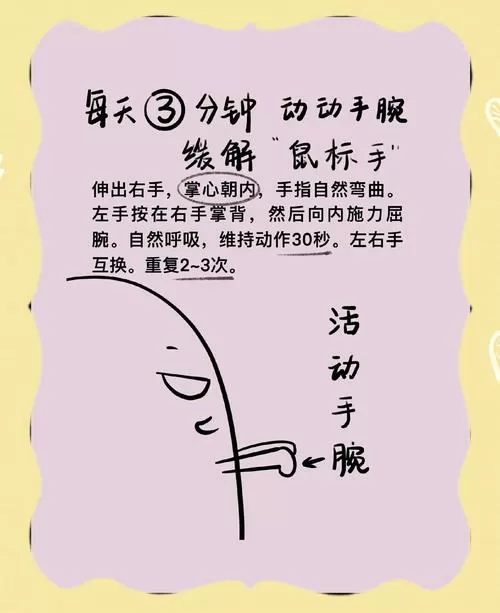 每天③分钟 动动手腕
缓解"鼠标手"
伸出右手，掌心朝内，手指自然弯曲。
左手按在右手掌背，然后向内施力屈
腕。自然呼吸，维持动作30秒。左右手
互换。重复2~3次。
活动手腕